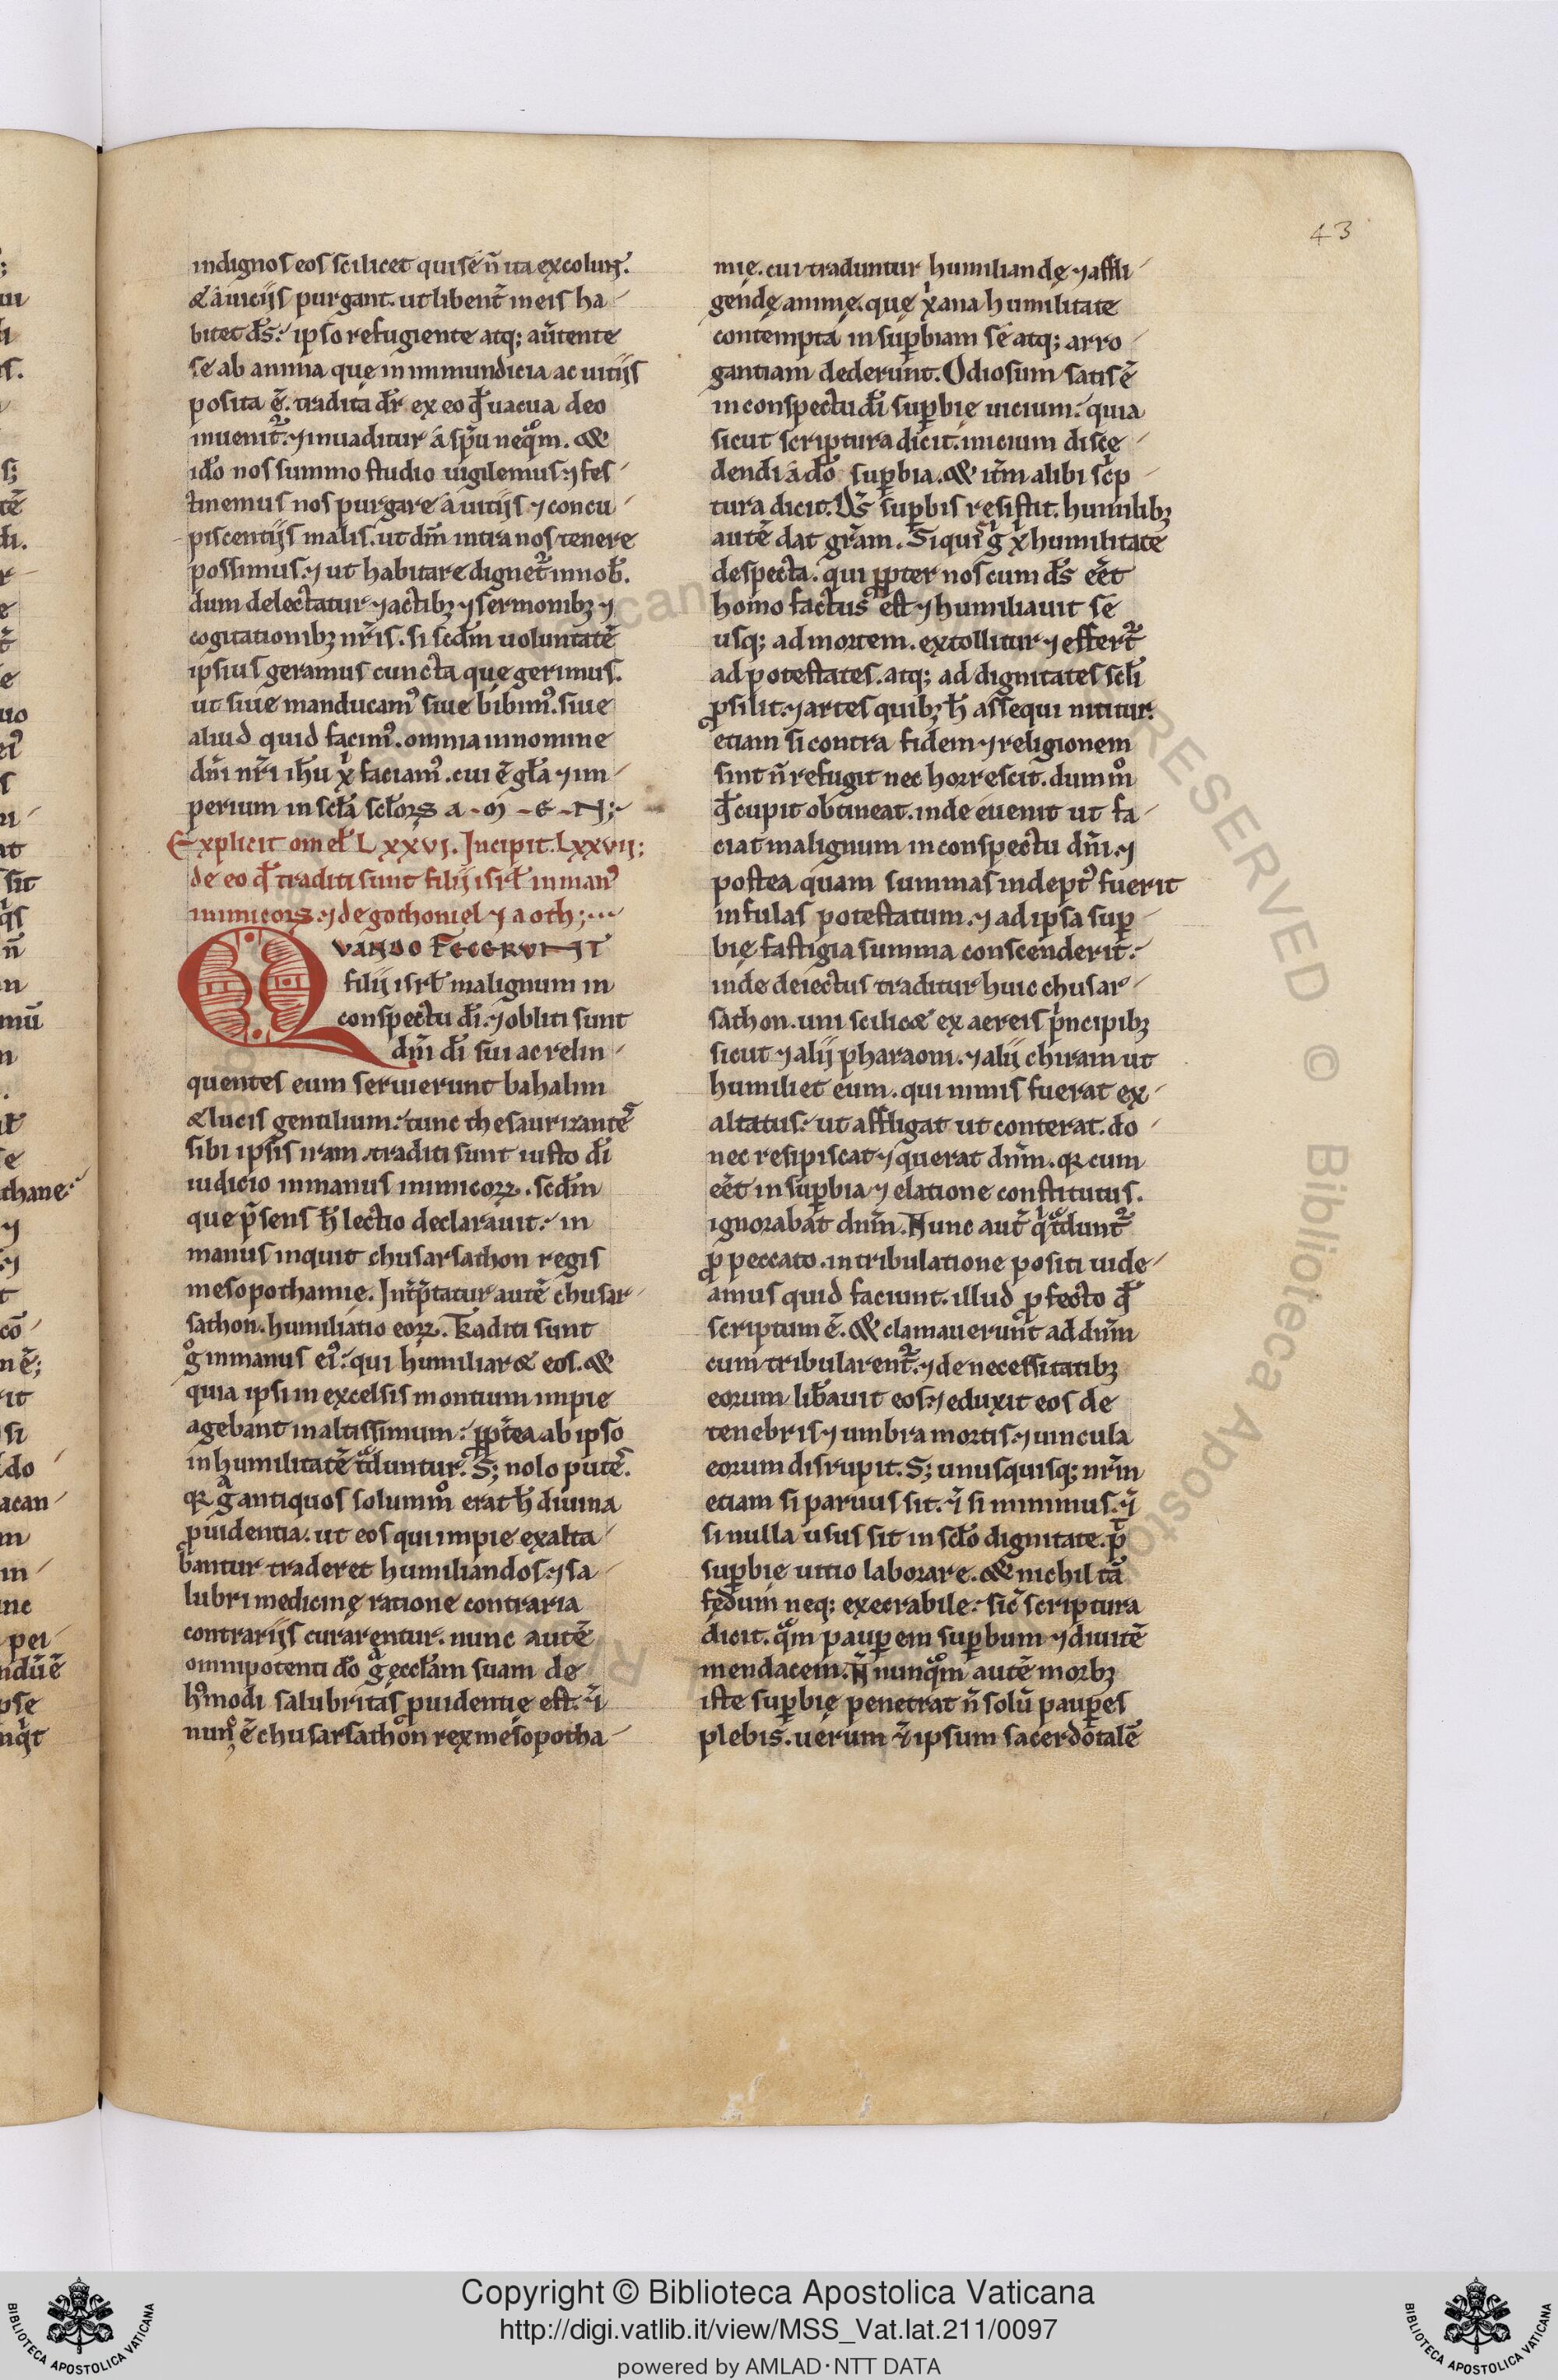 43
indignos eos scilicet qui se n̄ ita excolunt.
& a uiciis purgant. ut libent̄ in eis ha-
bitet d̄s. ipso refugiente atq; aūtente
se ab anima quę in inmundicia ac uitiis
posita ē. tradita dr̄ ex eo qđ uacua deo
inuenit᷑. ⁊ inuaditur a sp̄u neq̊m. &
ido̅ nos summo studio uigilemus ⁊ fes-
tinemus nos purgare a uitiis ⁊ concu-
piscentiis malis. ut dm̄ intra nos tenere
possimus. ⁊ ut habitare dignet᷑ in nob̄.
dum delectatur ⁊ actibꝫ ⁊ sermonibꝫ ⁊
cogitationibꝫ nr̄is. si scd̄m uoluntatē
ipsius geramus cuncta quę gerimus.
ut siue manducamꝰ siue bibimꝰ. siue
aliud quid facimꝰ. omnia in nomine
dn̄i nr̄i ih̄u xp̄i faciamꝰ. cui ē gl̄a ⁊ im-
perium in scl̄a scl̄oꝝ A-M-E-N;
Explicit omel̄ LXXVI. Incipit. LXXVII;
de eo qđ traditi sunt filii isrl̄ in manꝰ
inimicoꝝ. ⁊ de gothoniel ⁊ aoth;...
QVANDO FECERVNT
filii isrl̄ malignum in
conspectu dī. ⁊ obliti sunt
dn̄i dī sui ac relin-
quentes eum seruierunt bahalim
& lucis gentilium. tunc thesaurizantes
sibi ipsis iram. traditi sunt iusto dī
iudicio in manus inimicoꝝ. scd̄m
que p̄sens h̄ lectio declarauit. in
manus inquit chusarsathon regis
mesopothamię. Int̄p̄tatur autē chusar-
sathon. humiliatio eoꝝ. Traditi sunt
gͦ in manus eiꝰ. qui humiliar& eos. &
quia ipsi in excelsis montium impie
agebant in altissimum. ꝓpt̄ea ab ipso
in humilitatē tͣduntur. S; nolo putes.
qꝛ gͣ antiquos solummͦ erat h̄ diuina
ꝓuidentia. ut eos qui impie exalta-
bantur traderet humiliandos. ⁊ sa-
lubri medicinę ratione contraria
contrariis curarentur. nunc autē
omnipotenti do̅ gͣ eccl̄am suam de
hꝰmodi salubritas ꝓuidentię est. ⁊̄
nunͨ ē chusarsathon rex mesopotha-
mię. cui traduntur humiliandę ⁊ affli-
gendę animę. quę xp̄iana humilitate
contempta in suꝑbiam se atq; arro-
gantiam dederunt. Odiosum satis ē
in conspectu dī suꝑbię uicium. quia
sicut scriptura dicit. inicium discę-
dendi a do̅ suꝑbia. & it̄m alibi scⁱp-
tura dicit. D̄s suꝑbis resistit. humilibꝫ
autē dat gr̄am. Si quis gͦ xp̄i humilitate
despecta. qui ꝓpter nos cum d̄s eēt
homo factus est ⁊ humiliauit se
usq; ad mortem. extollitur ⁊ effert᷑
ad potestates. atq; ad dignitates scl̄i
ꝓsilit. ⁊ artes quibꝫ h̄ assequi nititur.
etiam si contra fidem ⁊ religionem
sint n̄ refugit nec horrescit. dummͦ
qđ cupit obtineat. inde euenit ut fa-
ciat malignum in conspectu dn̄i. ⁊
postea quam summas indeptꝰ fuerit
infulas potestatum. ⁊ ad ipsa suꝑ-
bię fastigia summa conscenderit.
inde deiectus traditur huic chusar-
sathon. uni scilic& ex aereis pⁱncipibꝫ
sicut ⁊ alii pharaoni. ⁊ alii chiram ut
humiliet eum. qui nimis fuerat ex-
altatus. ut affligat ut conterat. do-
nec resipiscat ⁊ querat dn̄m. qꝛ cum
eēt in suꝑbia ⁊ elatione constitutus.
ignorabat dn̄m. Nunc aut̄ qⁱ tͣdunt᷑
ꝓ peccato. in tribulatione positi uide-
amus quid faciunt. illud ꝓfecto qđ
scriptum ē. & clamauerunt ad dn̄m
cum tribularent᷑. ⁊ de necessitatibꝫ
eorum lib̄auit eos. ⁊ eduxit eos de
tenebris ⁊ umbra mortis. ⁊ uincula
eorum disrupit. S; unusquisq; nr̄m
etiam si paruus sit. ⁊̄ si minimus. ⁊̄
si nulla usus sit in scl̄o dignitate. p̄t
suꝑbię uitio laborare. & nichil tā
fędum neq; execrabile. sic̄ scriptura
dicit. qͣm pauꝑem suꝑbum ⁊ diuitē
mendacem. N̄ nunqͣm autē morbꝫ
iste suꝑbię penetrat n̄ solū pauꝑes
plebis. uerum ⁊̄ ipsum sacerdotalē
Copyright © Biblioteca Apostolica Vaticana
http://digi.vatlib.it/view/MSS_Vat.lat.211/0097
powered by AMLAD·NTT DATA
BIBLIOTECA APOSTOLICA VATICANA
BIBLIOTECA APOSTOLICA VATICANA